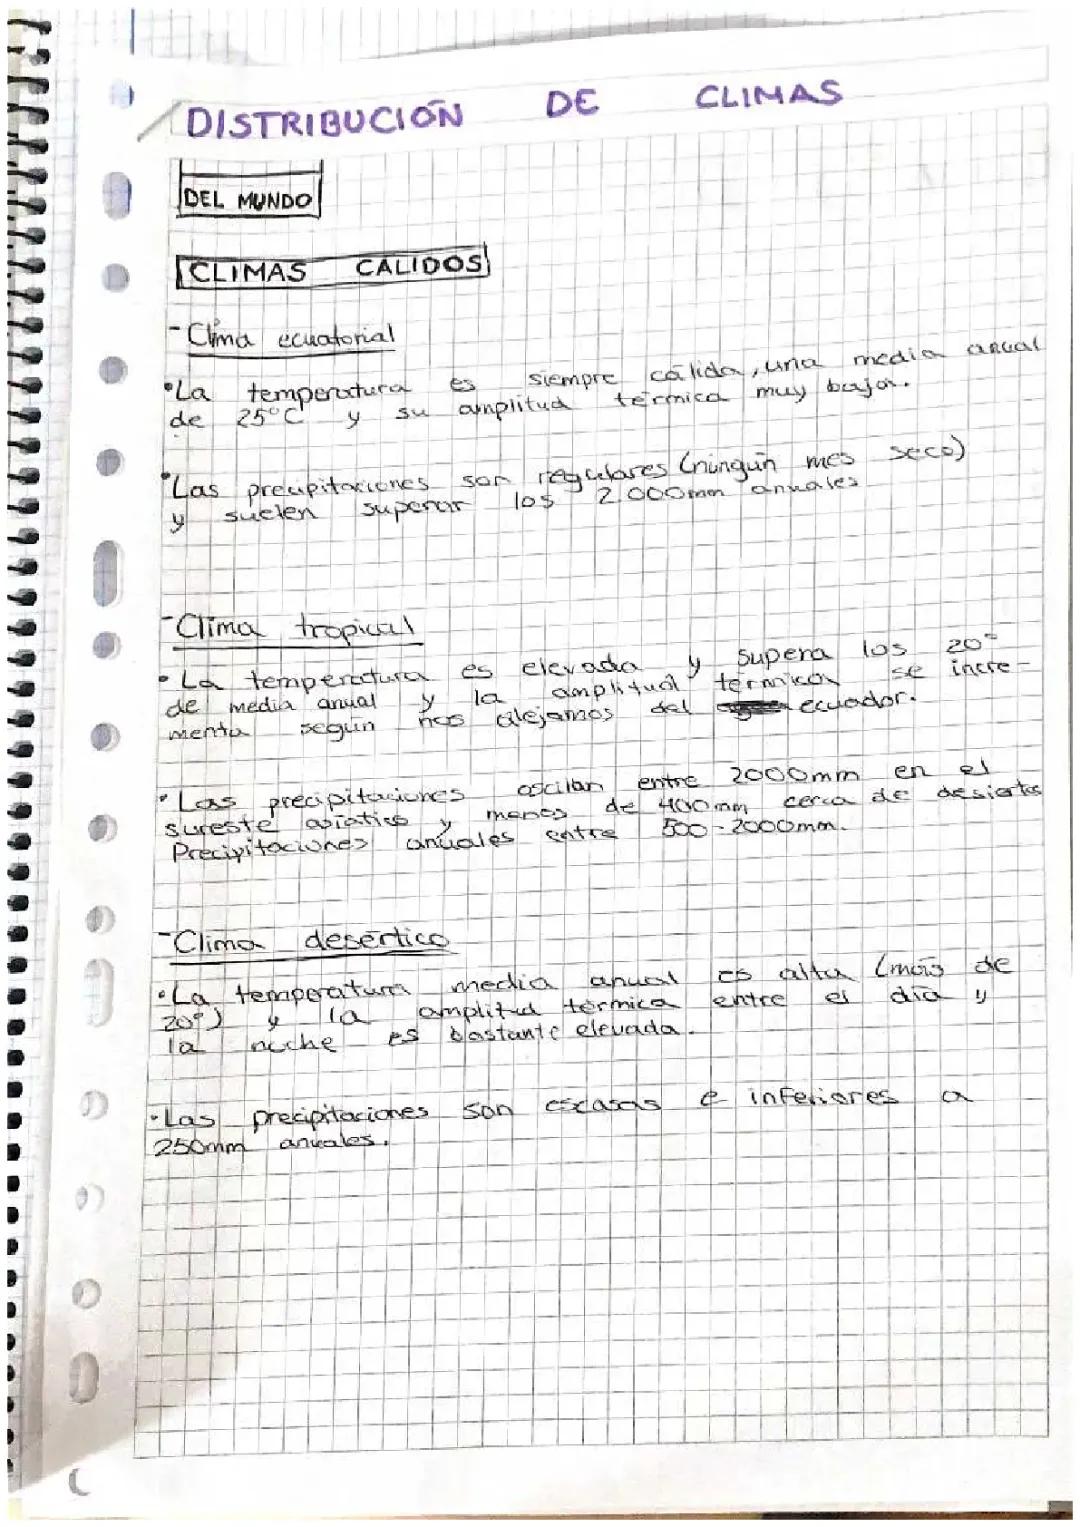 DISTRIBUCIÓN DE CLIMAS
DEL MUNDO
CLIMAS CÁLIDOS
- Clima ecuatorial
•La temperatura es siempre cálida, una media anual
de 25°C y su amplitud térmica muy baja.
•Las precipitaciones son regulares (ningún mes seco)
y suelen superar los 2.000mm anuales
- Clima tropical
•La temperatura es elevada y supera los 20°
de media anual y la amplitud térmica se incre-
menta según nos alejamos del ecuador.
•Las precipitaciones oscilan entre 2000mm en el
sureste asiático y menos de 400mm cerca de desiertos
Precipitaciones anuales entre 500-2000mm.
- Clima desértico
•La temperatura media anual es alta (más de
20°) y la amplitud térmica entre el día y
la noche es bastante elevada.
•Las precipitaciones son escasas e inferiores a
250mm anuales.